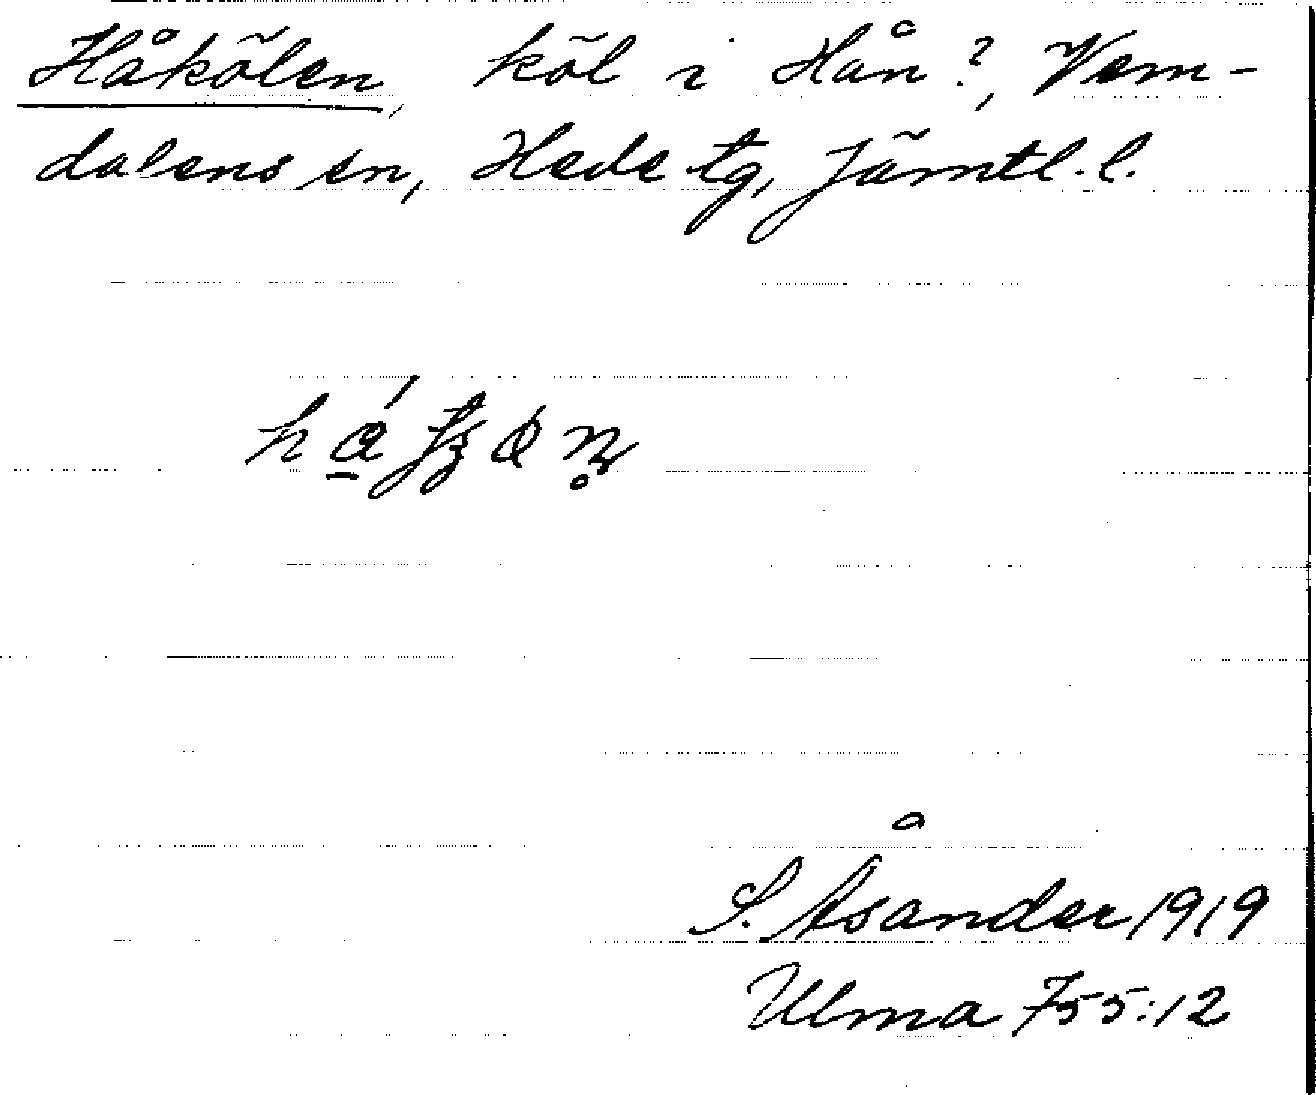 Håkölen, köl i Hån?, Vem-
dalens sn, Hede tg, Jämtl. l.
S. Åsander 1919
Ulma 755:12